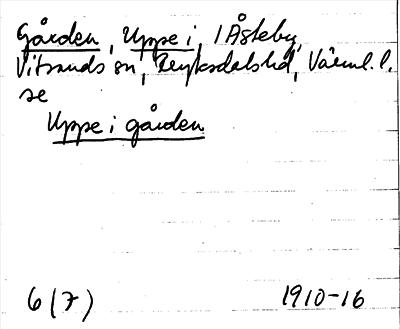 Gården, Uppe i, / Åsteby,
Vitsands sn, Fryksdals hd, Värml. l.
se
Uppe i gården
6 (7)
1910-16